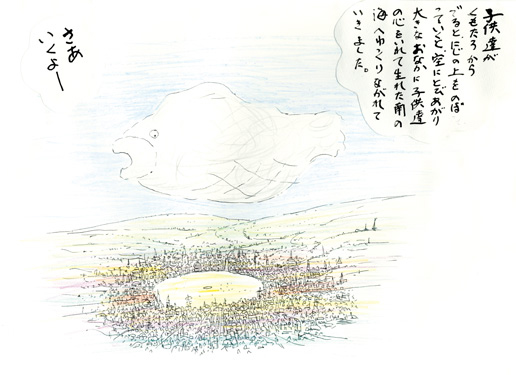 子供達が
から
でるとにじの上をのぼ
っていくと、空にとびあがり
大きなおなかに子供達
の心をいれて生れた南の
海へゆっくりながれて
いきました。
さあ
いくよー